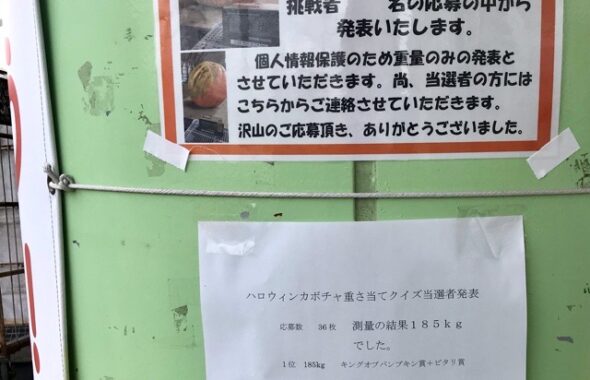 挑戦者 名の応募の中から
発表いたします。
個人情報保護のため重量のみの発表と
させていただきます。尚、当選者の方には
こちらからご連絡させていただきます。
沢山のご応募頂き、ありがとうございました。
ハロウィンカボチャ重さ当てクイズ当選者発表
応募数 36枚 測量の結果185kg
でした。
1位 185kg キングオブパンプキン賞+ピタリ賞
!!